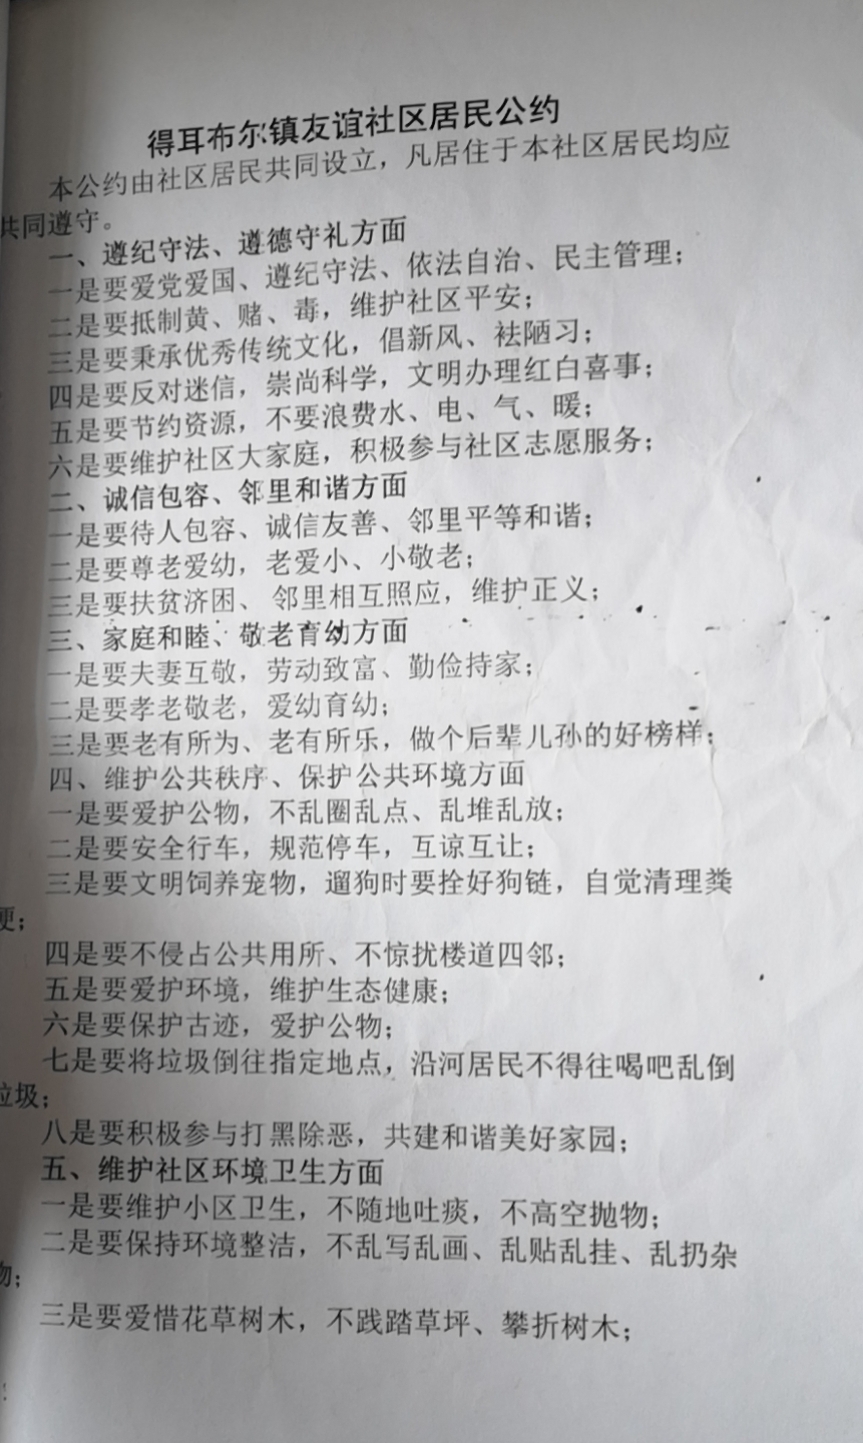 得耳布尔镇友谊社区居民公约
本公约由社区居民共同设立，凡居住于本社区居民均应
共同遵守。
一、遵纪守法、遵德守礼方面
一是要爱党爱国、遵纪守法、依法自治、民主管理；
二是要抵制黄、赌、毒，维护社区平安；
三是要秉承优秀传统文化，倡新风、祛陋习；
四是要反对迷信，崇尚科学，文明办理红白喜事；
五是要节约资源，不要浪费水、电、气、暖；
六是要维护社区大家庭，积极参与社区志愿服务；
二、诚信包容、邻里和谐方面
一是要待人包容、诚信友善、邻里平等和谐；
二是要尊老爱幼，老爱小、小敬老；
三是要扶贫济困、邻里相互照应，维护正义；
三、家庭和睦、敬老育幼方面
一是要夫妻互敬，劳动致富、勤俭持家；
二是要孝老敬老，爱幼育幼；
三是要老有所为、老有所乐，做个后辈儿孙的好榜样；
四、维护公共秩序、保护公共环境方面
一是要爱护公物，不乱圈乱点、乱堆乱放；
二是要安全行车，规范停车，互谅互让；
三是要文明饲养宠物，遛狗时要拴好狗链，自觉清理粪
便；
四是要不侵占公共用所、不惊扰楼道四邻；
五是要爱护环境，维护生态健康；
六是要保护古迹，爱护公物；
七是要将垃圾倒往指定地点，沿河居民不得往喝吧乱倒
垃圾；
八是要积极参与打黑除恶，共建和谐美好家园；
五、维护社区环境卫生方面
一是要维护小区卫生，不随地吐痰，不高空抛物；
二是要保持环境整洁，不乱写乱画、乱贴乱挂、乱扔杂
物；
三是要爱惜花草树木，不践踏草坪、攀折树木；